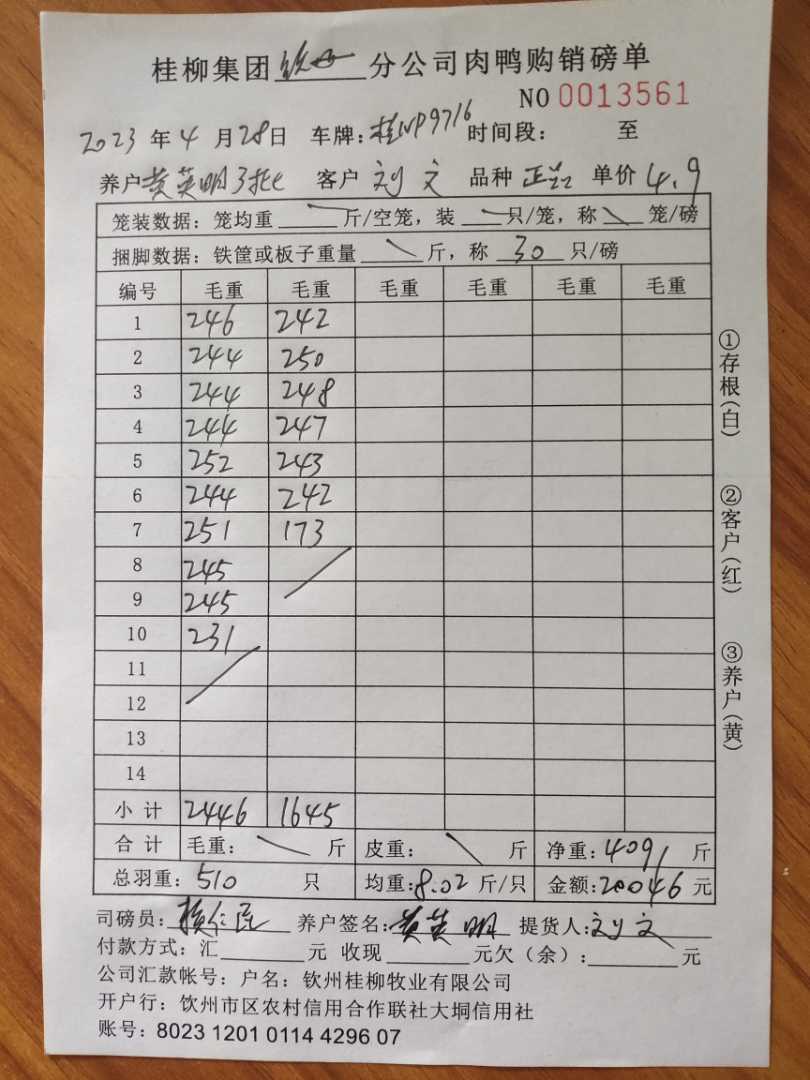 桂柳集团 钦州 分公司肉鸭购销磅单
NO 0013561
2023 年 4 月 28 日 车牌: 桂NP9716 时间段: 至
养户 黄英明 客户 刘文 品种 单价 4.9
笼装数据: 笼均重 斤/空笼, 装 只/笼, 称 笼/磅
捆脚数据: 铁筐或板子重量 斤, 称 30 只/磅
编号 毛重 毛重 毛重 毛重 毛重 毛重
1 246 242
2 244 250
3 244 248
4 244 247
5 252 243
6 244 242
7 251 173
8 245
9 245
10 231
11
12
13
14
小计 2446 1645
合计 毛重: 斤 皮重: 斤 净重: 4091 斤
总羽重: 510 只 均重: 8.02 斤/只 金额: 20046 元
司磅员: 养户签名: 黄英明 提货人: 刘文
付款方式: 汇 元 收现 元欠(余): 元
公司汇款帐号: 户名: 钦州桂柳牧业有限公司
开户行: 饮州市区农村信用合作联社大垌信用社
账号: 8023 1201 0114 4296 07
①存根(白)
②客户(红)
③养户(黄)